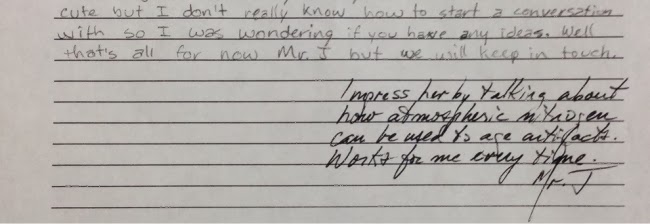 cute but I don't really know how to start a conversation
with so I was wondering if you have any ideas. Well
that's all for now Mr. J but we will keep in touch.
Impress her by talking about
how atmospheric nitrogen
can be used to age artifacts.
Works for me every time.
Mr. J